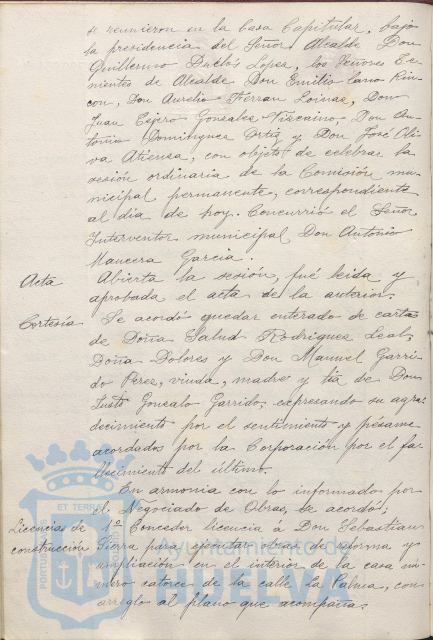 se reunieron en la Casa Capitular, bajo
la presidencia del Señor Alcalde Don
Guillermo Duclós López, los Señores Te-
nientes de Alcalde Don Emilio Cano Rin-
con, Don Aurelio Terran Loinaz, Don
Juan Espiro Gonzalez-Tiscaino, Don An-
tonio Dominguez Ortiz y Don José Oli-
va Atienza, con objeto de celebrar la
sesión ordinaria de la Comisión mu-
nicipal permanente, correspondiente
al día de hoy. Concurrió el Señor
Interventor municipal Don Antonio
Mancera Garcia.
Acta Abierta la sesión, fué leida y
aprobada el acta de la anterior.
Cortesía Se acordó quedar enterado de carta
de Doña Salud Rodriguez Leal,
Doña Dolores y Don Manuel Garri-
do Perez, viuda, madre y tía de Don
Justo Gonzalo Garrido, expresando su agra-
decimiento por el sentimiento y pésame
acordados por la Corporación por el fa-
llecimiento del último.
En armonia con lo informado por
el Negociado de Obras, se acordó;
Licencias de 1º Conceder licencia á Don Sebastian
construcción Sierra para ejecutar obras de reforma y
ampliación en el interior de la casa nú-
mero catorce de la calle La Palma, con
arreglo al plano que acompaña.
ET TERRAE
PORTUS
Ayuntamiento de
HUELVA